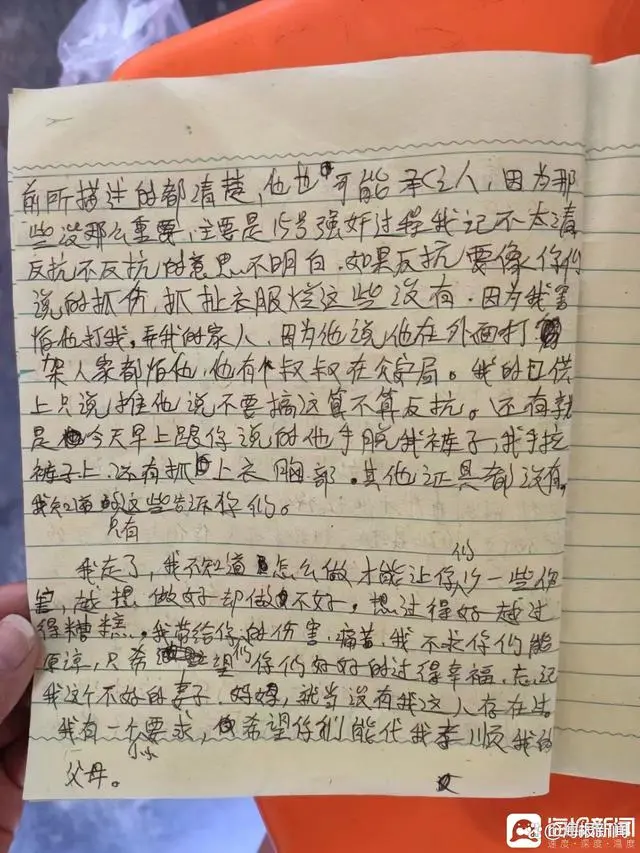 前所描述的都清楚,他也可能承认人,因为那
些没那么重要,主要是15号强奸过程我记不太清
反抗不反抗的意思不明白.如果反抗要像你们
说的抓伤,抓扯衣服烂这些没有.因为我害
怕他打我,弄我的家人,因为他说他在外面打
架人家都怕他,他有个叔叔在公安局。我的口供
上只说推他说不要搞这算不算反抗。还有就
是今天早上跟你说的他手脱我裤子,我手拉
裤子上.还有抓上衣胸部.其他证具都没有.
我知道的只有这些告诉你们。
我走了,我不知道怎么做才能让你们少一些伤
害,越想做好却做不好.想过得好越过
得糟糕。我带给你的伤害.痛苦.我不求你们能
原谅,只希望你们好好的过得幸福.忘记
我这个不好的妻子.妈妈,就当没有我这人存在过.
我有一个小小要求,希望你们能代我孝顺我的
父母。
海报新闻
海报新闻
速度·深度·温度